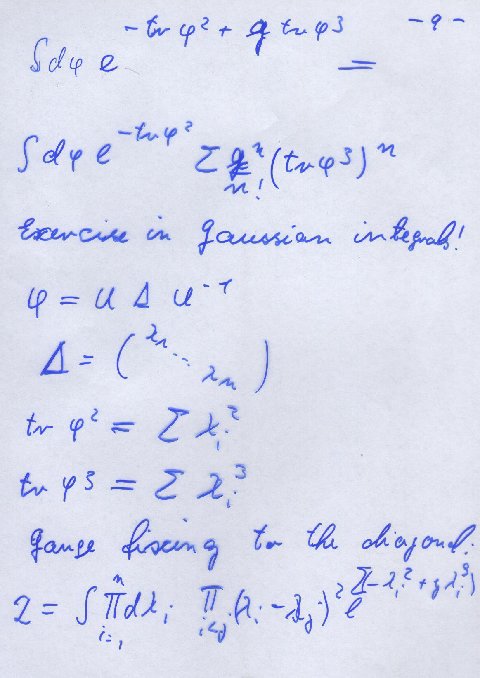 - 9 -
∫ dφ e^{- tr φ² + g tr φ³} =
∫ dφ e^{- tr φ²} Σ gⁿ/n! (tr φ³)ⁿ
Exercise in Gaussian integrals!
φ = U Δ U⁻¹
Δ = (λ₁ ... λₙ)
tr φ² = Σ λᵢ²
tr φ³ = Σ λᵢ³
Gauge fixing to the diagonal:
Z = ∫ ∏_{i=1}^{n} dλᵢ ∏_{i<j} (λᵢ - λⱼ)² e^{Σ(-λᵢ² + gλᵢ³)}